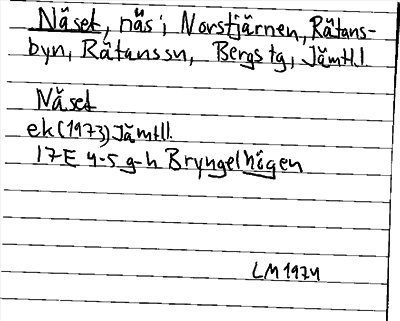 Näset, näs i Norstjärnen, Rätans-
byn, Rätanssn, Bergs tg, Jämtl.
Näset
ek (1973) Jämtl.
17E 4-5 g-h Bryngelhögen
LM 1974